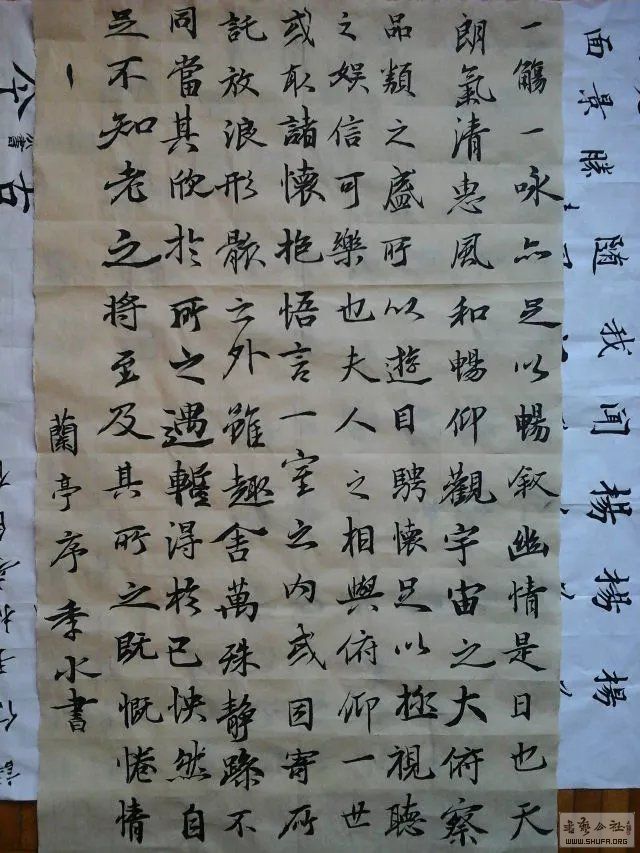 面景勝隨我闻
一觴一咏亦足以暢叙幽情是日也天
朗氣清惠風和暢仰觀宇宙之大俯察
品類之盛所以遊目騁懷足以極視聽
之娛信可樂也夫人之相與俯仰一世
或取諸懷抱悟言一室之内或因寄所
託放浪形骸之外雖趣舍萬殊静躁不
同當其欣於所之遇暫得於己怏然自
足不知老之將至及其所之既慨惓情
一
蘭亭序季水書
書藝公社
WWW.SHUFA.ORG